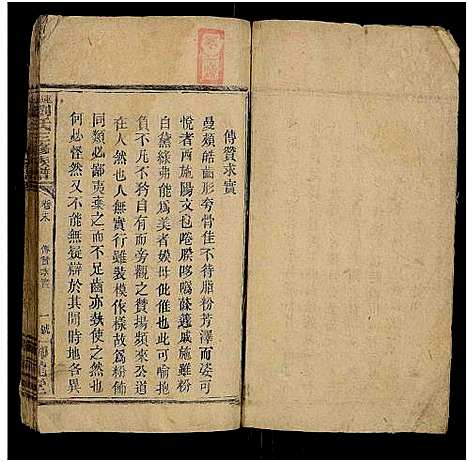 傳贊求實
曼頰皓齒形夸骨佳不待脂粉芳澤而姿可
悅者西施陽文也啳䐇哆噅蘧蒢戚施雖粉
白黛綠弗能為美者嫫母仳倠也此可喻抱
負不凡不矜自有而旁觀之贊揚頻來公道
在人然也人無實行雖裝模作樣故為粉飾
同類必鄙夷棄而不足齒亦孰使之然哉然
何必怪然又不能無疑辯於其間時地各異
劉氏三修族譜
卷末
傳贊求實
一號